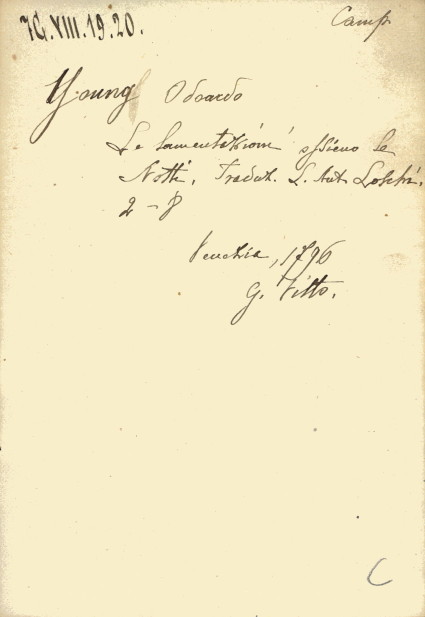 7G.VIII.19.20.
Camp
Young Odoardo
Le lamentazioni ossieno le
Notti. Traduz. L. Ant. Loschi.
2 - 8
Venezia, 1796
G. Zitto.
C